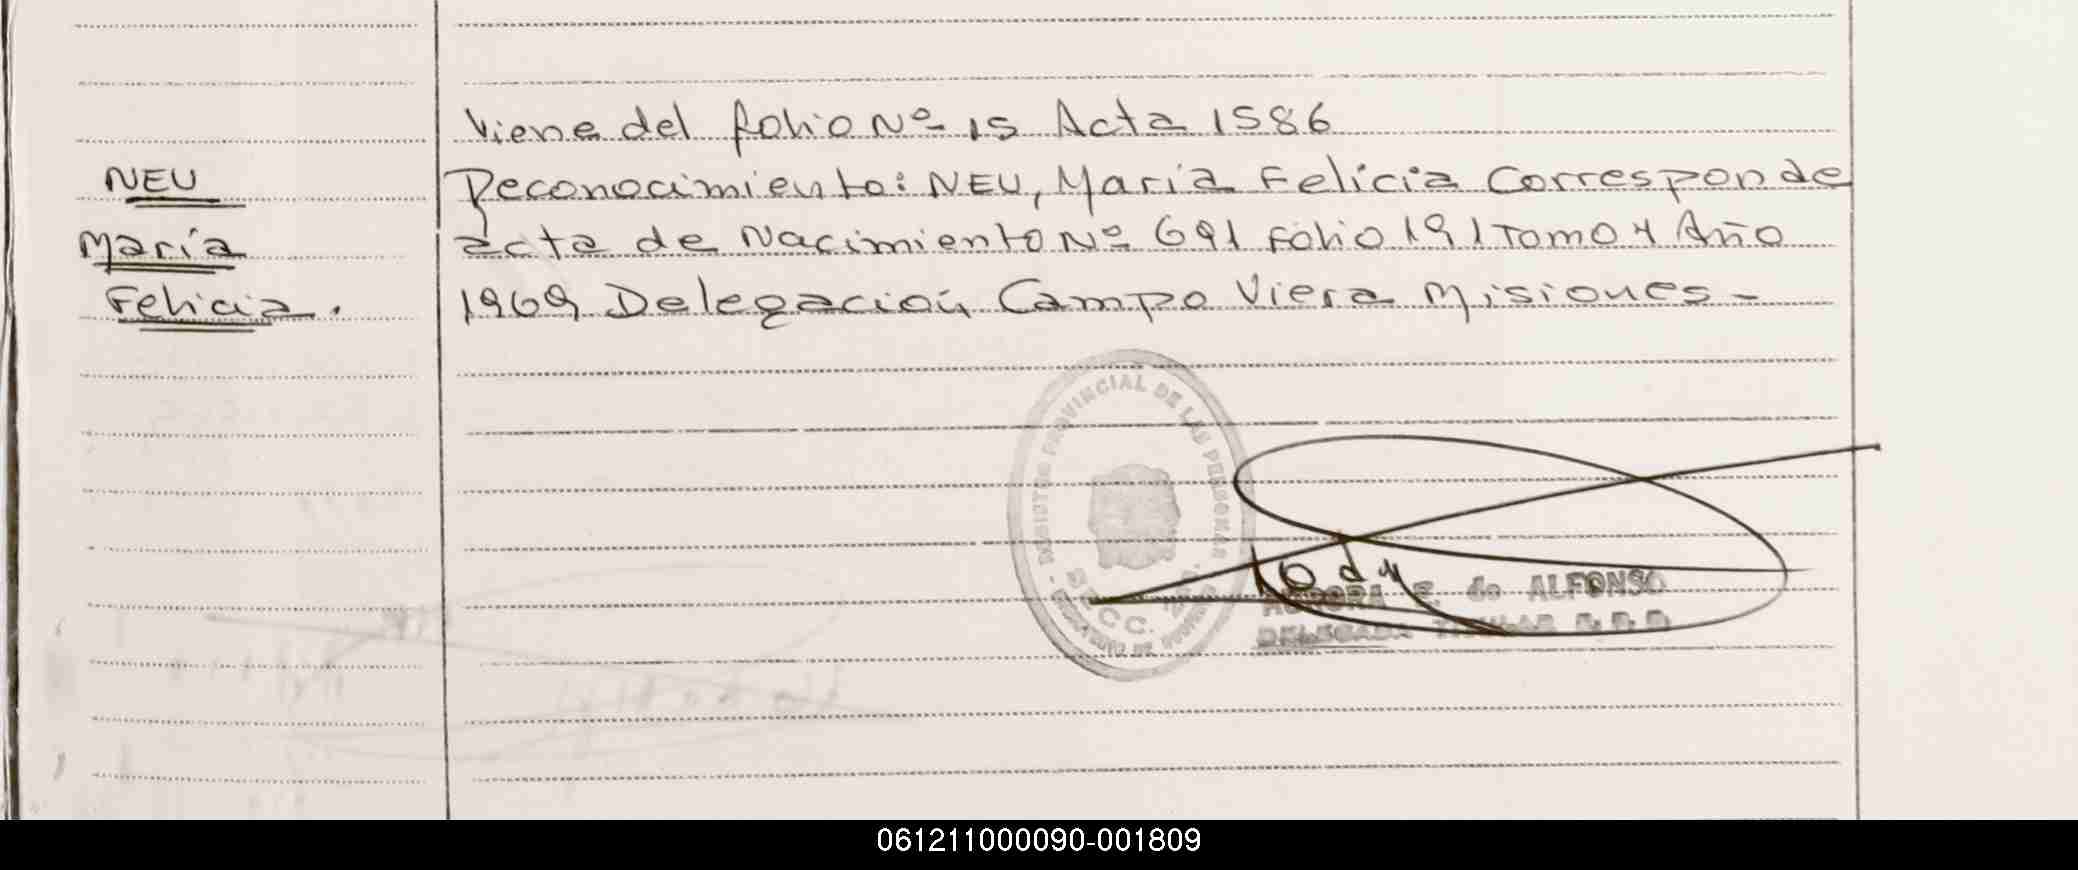 Viene del folio Nº 15 Acta 1586
NEU
María
Felicia.
Reconocimiento: NEU, María Felicia Corresponde
acta de Nacimiento Nº 691 Folio 191 Tomo 4 Año
1969 Delegación Campo Viera Misiones-
REGISTRO PROVINCIAL DE LAS PERSONAS
AURORA E. de ALFONSO
DELEGADA TITULAR
061211000090-001809